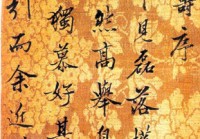 詩序
中見磊落
然高舉自
獨慕好其
引而余近